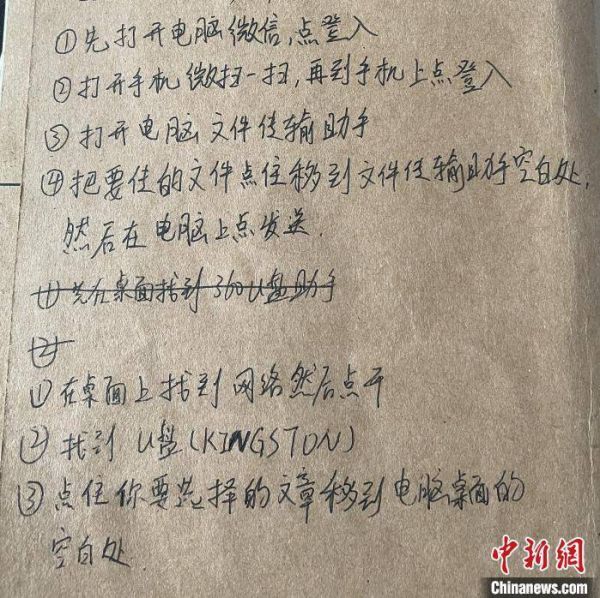 ①先打开电脑微信,点登入
②打开手机微扫一扫,再到手机上点登入
③打开电脑文件传输助手
④把要传的文件点住移到文件传输助手空白处,
然后在电脑上点发送.
①先在桌面找到360U盘助手
②
①在桌面上找到网络然后点开
②找到U盘(KINGSTON)
③点住你要选择的文章移到电脑桌面的
空白处.
中新網
Chinanews.com